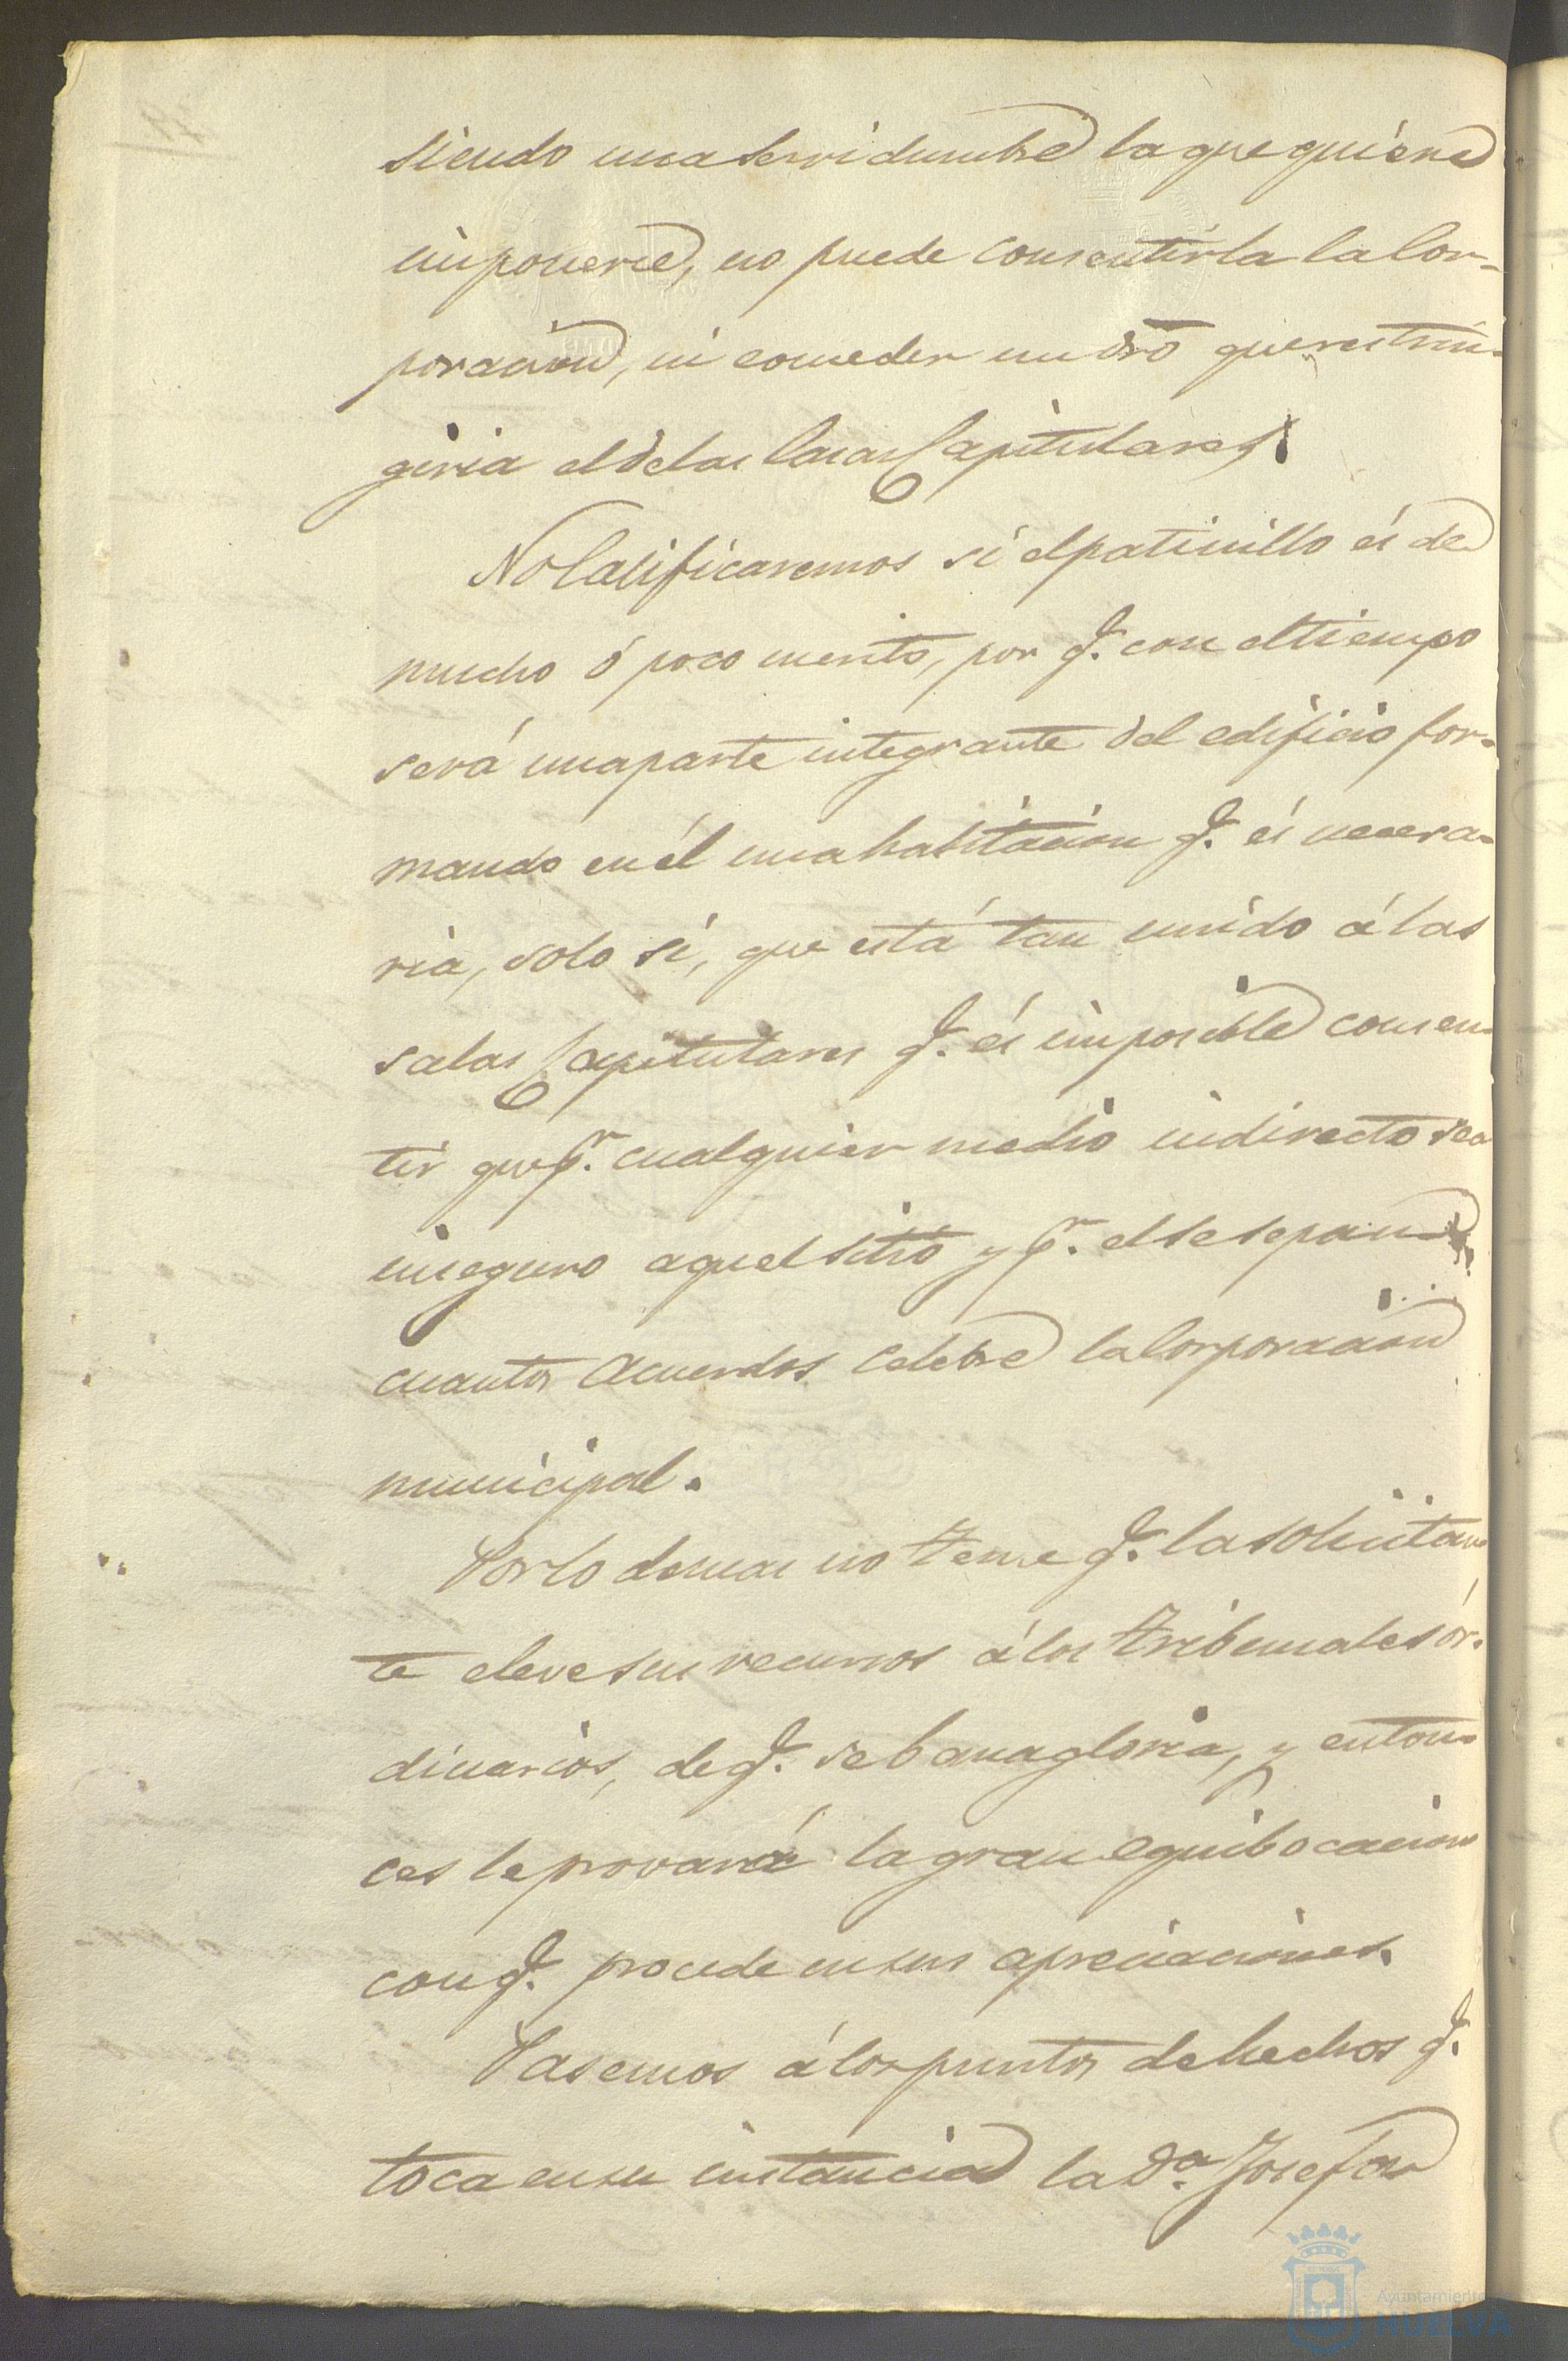 siendo una servidumbre la que quiere
imponerse, no puede consentirla la Cor-
poracion, ni conceder un dro que restrin-
giria el de las Casas Capitulares.
No Calificaremos si el patinillo és de
mucho ó poco merito, por q. con el tiempo
será una parte integrante del edificio for-
mando en él una habitacion q. és necesa-
ria, solo si, que está tan unido á las
salas Capitulares q. és imposible consen-
tir que pr. cualquier medio indirecto sea
inseguro aquel sitio y pr. el se sepan
cuantos Acuerdos celebre la Corporacion
municipal.
Por lo demas no teme q. la solicitan-
te eleve sus recursos á los tribunales ór-
dinarios, de q. se banagloria, y enton-
ces le provará la gran equibocacion
con q. procede en sus apreciaciones.
Pasemos á los puntos de hechos q.
toca en su instancia la Da. Josefa
Ayuntamiento
HUELVA